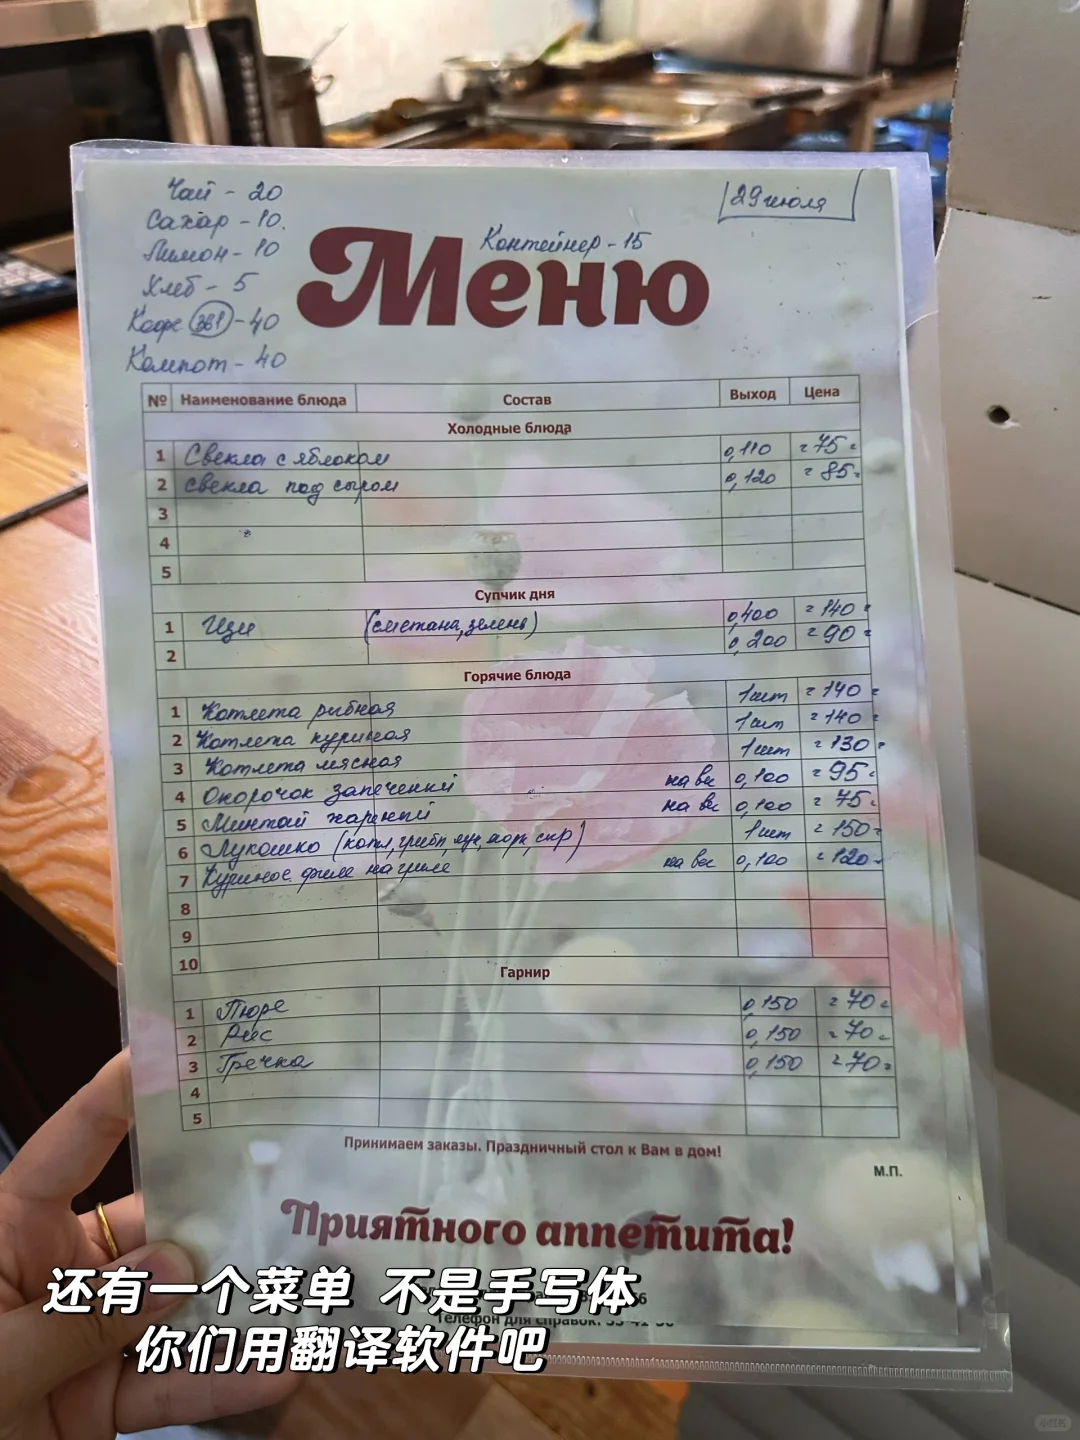 Чай - 20
Сахар - 10.
Лимон - 10
Хлеб - 5
Кофе (3в1) - 40
Компот - 40
29 июля
Контейнер - 15
Меню
№ Наименование блюда Состав Выход Цена
Холодные блюда
1 Свекла с яблоком 0,110 =75=
2 Свекла под сыром 0,120 =85=
3
4
5
Супчик дня
1 Щи (сметана, зелень) 0,400 =140=
2 0,200 =90=
Горячие блюда
1 Котлета рыбная 1шт =140=
2 Котлета куриная 1шт =140=
3 Котлета мясная 1шт =130=
4 Окорочок запеченный на вес 0,100 =95=
5 Минтай жареный на вес 0,100 =75=
6 Лукошко (котл, грибы, лук, морк, сыр) 1шт =150=
7 Куриное филе на гриле на вес 0,100 =120=
8
9
10
Гарнир
1 Пюре 0,150 =70=
2 Рис 0,150 =70=
3 Гречка 0,150 =70=
4
5
Принимаем заказы. Праздничный стол к Вам в дом!
М.П.
Приятного аппетита!
还有一个菜单 不是手写体
你们用翻译软件吧
Телефон для справок: